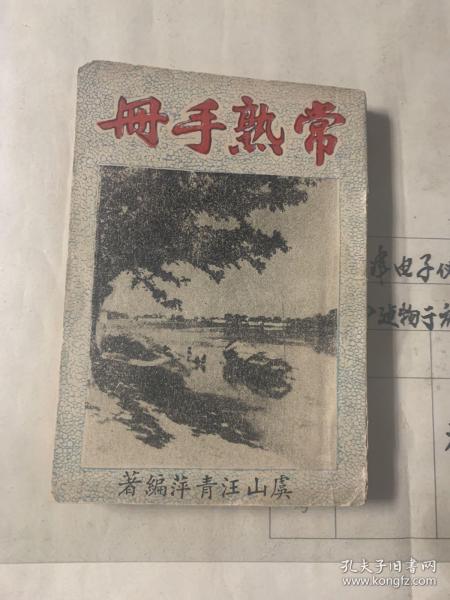 常熟手冊
虞山汪青萍編著
电子仪
孔夫子旧书网
www.kongfz.com